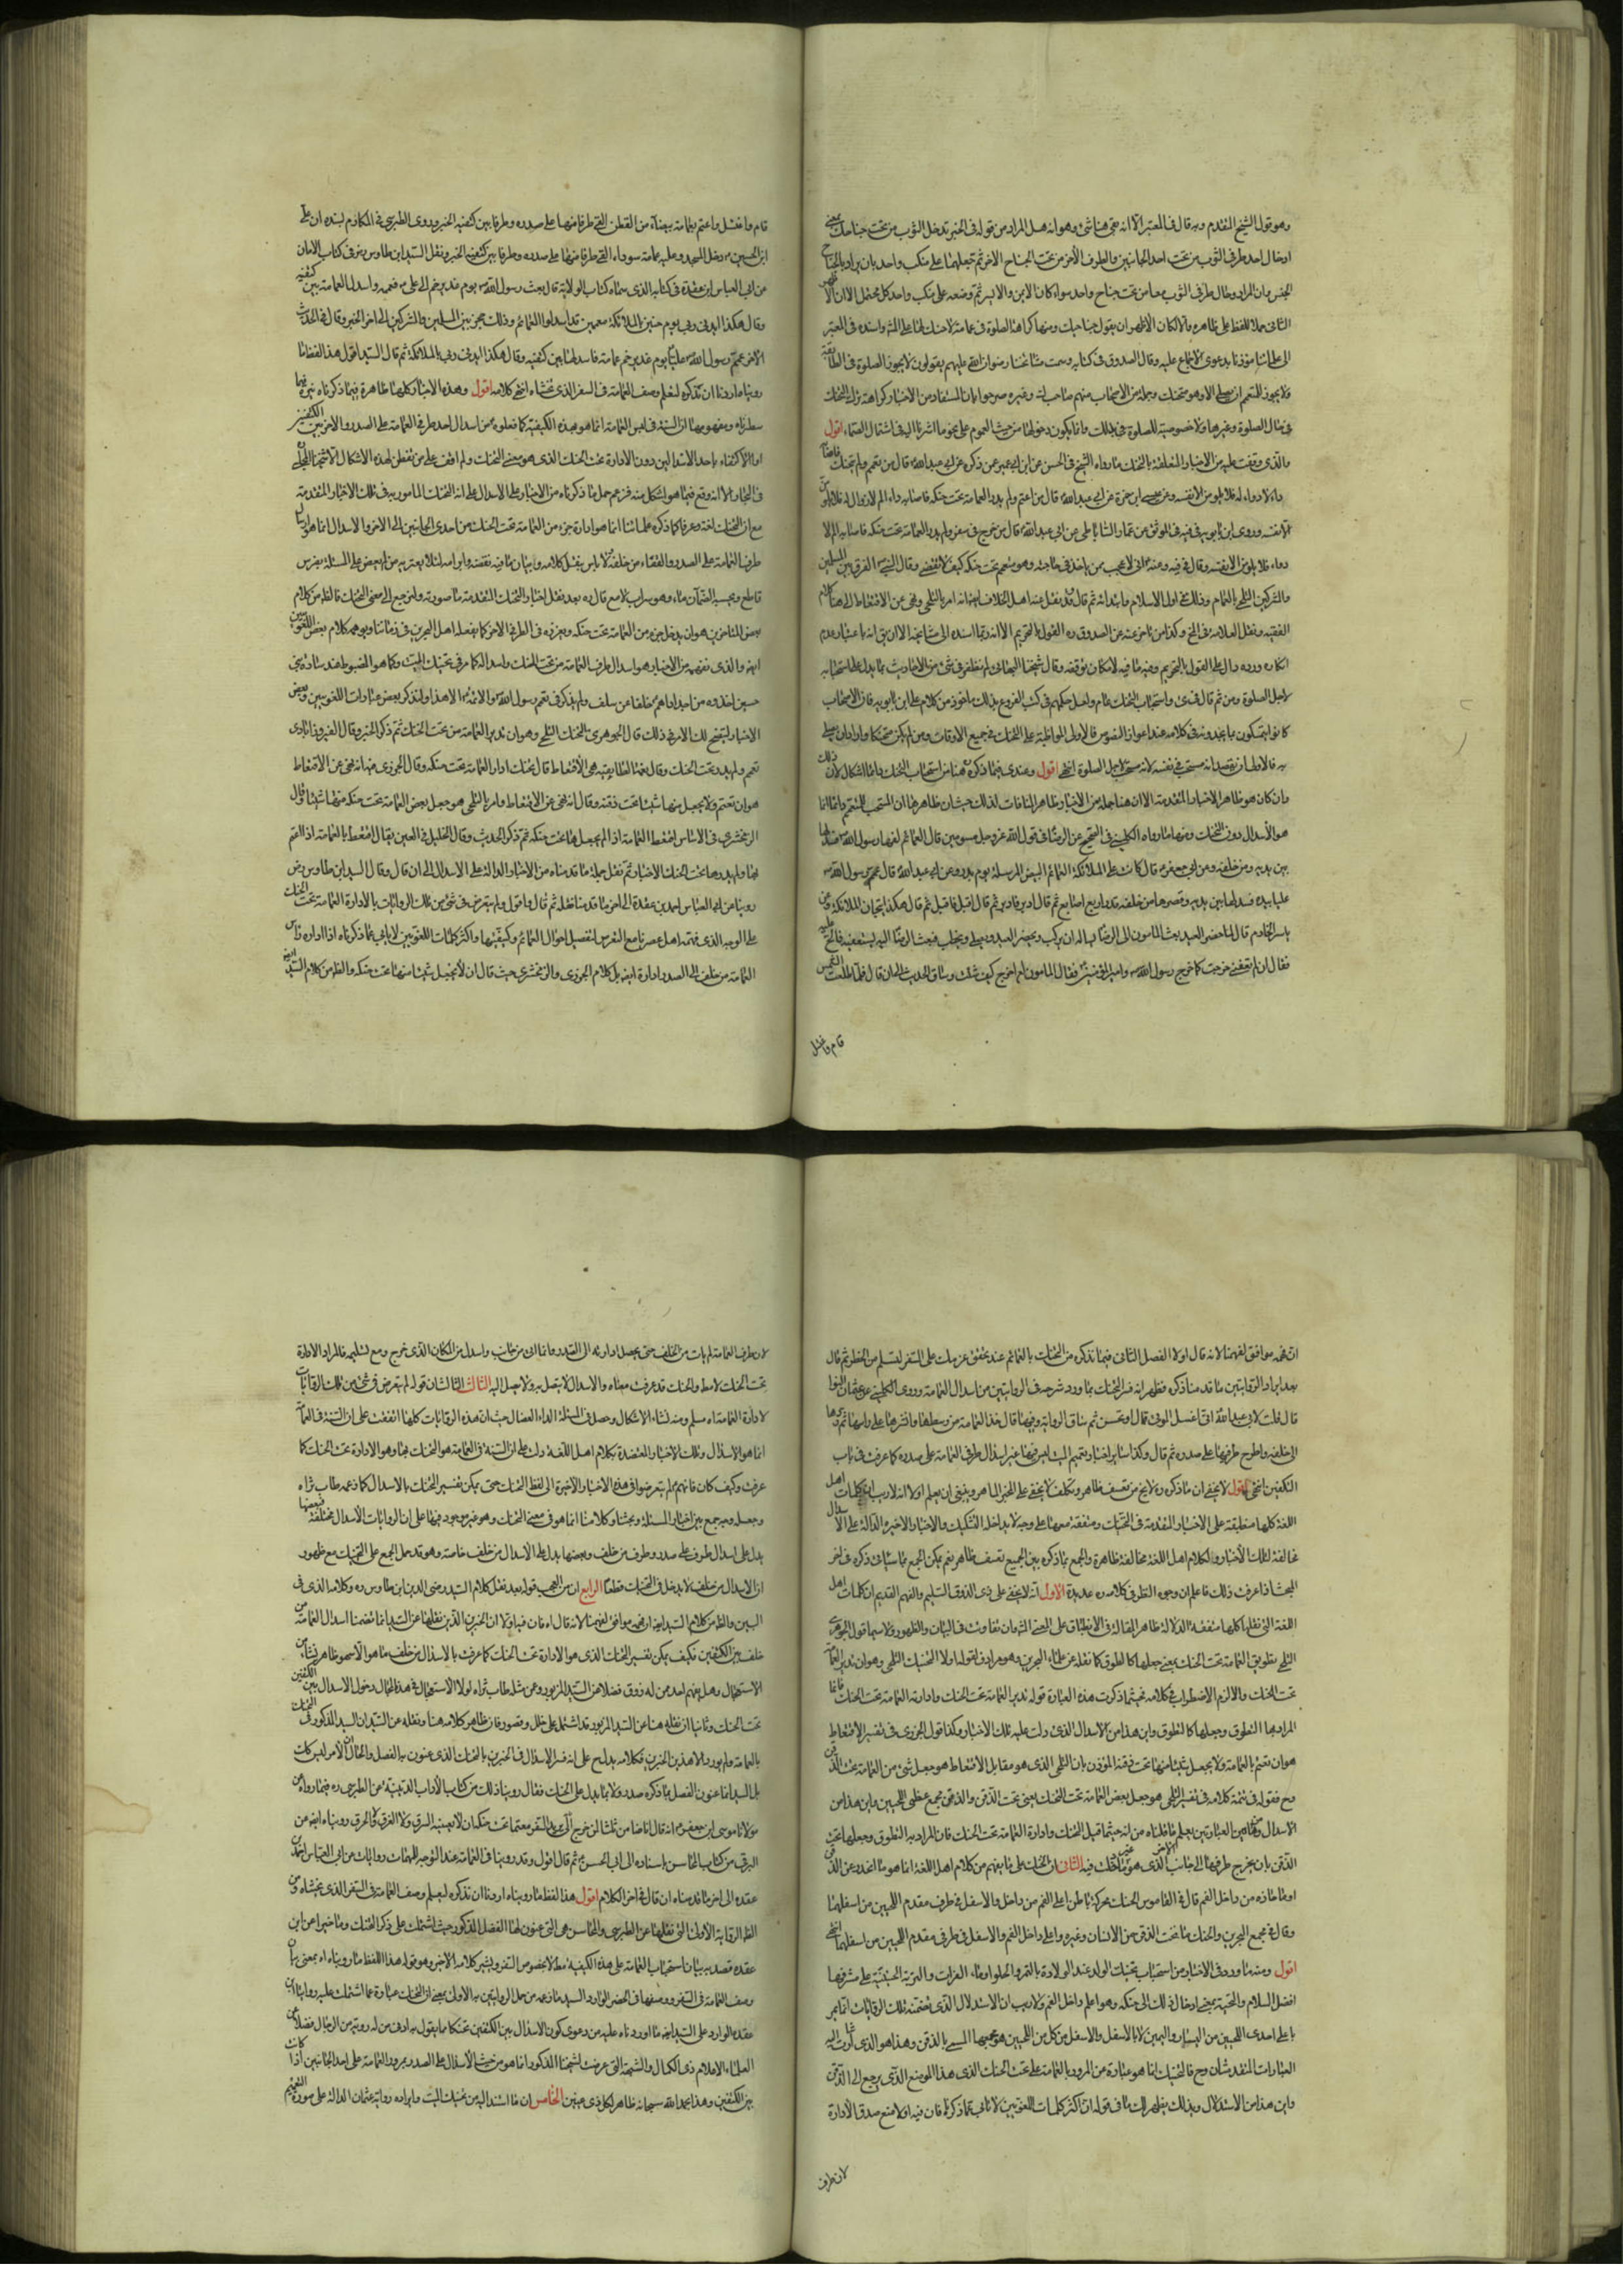 وهو قول الشيخ المتقدم وبه قال في المعتبر الا انه بقي هنا شئ وهو انه هل المراد من قوله في الخبر تدخل الثوب من تحت جناحك
ادخال احد طرفي الثوب من تحت احد الجناحين والطرف الاخر من تحت الجناح الاخر ثم تجعلهما على منكب واحد بان يراد بالجناح
الجنس او ان المراد ادخال طرفي الثوب معا من تحت جناح واحد سواء كان الايمن والايسر ثم وضعه على منكب واحد كل محتمل الا ان
الثاني حملا للفظ على ظاهره والا لكان الاظهر ان يقول جناحيك ومنها كراهة الصلوة في عمامة لا حنك لها على المش واسنده في المعتبر
الى علمائنا مؤذنا بدعوى الاجماع عليه وقال الصدوق في كتابه وسمعت مشايخنا رضوان الله عليهم يقولون لا يجوز الصلوة في
ولا يجوز للمعتم ان يصلي الا وهو متحنك وجملة من الاصحاب منهم صاحب ك وغيره صرحوا بان المستفاد من الاخبار كراهة ترك التحنك
في حال الصلوة وغيرها ولا خصوصية للصلوة في ذلك وانما يكون دخولها من حيث العموم على نحو ما اشرنا اليه في اشتمال الصماء اقول
والذي وقفت عليه من الاخبار المتعلقة بالتحنك ما رواه الشيخ في الحسن عن ابن ابي عمير عمن ذكره عن ابي عبد الله قال من تعمم ولم يتحنك فاصابه
داء لا دواء له فلا يلومن الا نفسه وعن عيسى ابن حمزة عن ابي عبد الله قال من اعتم ولم يدر العمامة تحت حنكه فاصابه داء الم لا دواء له فلا يلومن
الا نفسه وروى ابن بابويه في فيه في الموثق عن عمار الساباطي عن ابي عبد الله قال من خرج في سفر ولم يدر العمامة تحت حنكه فاصابه الم لا
دواء فلا يلومن الا نفسه وقال في فيه وعنه اني لاعجب ممن ياخذ في حاجته وهو معتم تحت حنكه كيف لا تقضى وقال النبي الفرق بين المسلمين
والمشركين التلحي بالعمائم وذلك في اول الاسلام وابتدائه ثم قال قد نقل عنه اهل الخلاف ايضا انه امر بالتلحي ونهى عن الاقتعاط الى هنا كلام
الفقيه ونقل العلامة في المخ وكذا من تاخر عنه عن الصدوق ره القول بالتحريم الا انه ربما اسنده الى مشايخه الا ان يق انه باعتبار عدم
انكاره ورده دال على القول بالتحريم وفيه ما فيه لامكان توقفه وقال شيخنا البهائي لم نظفر في شئ من الاحاديث بما يدل على استحبابه
لاجل الصلوة ومن ثم قال في ى واستحباب التحنك عام ولعل حكمهم في كتب الفروع بذلك ماخوذ من كلام علي ابن بابويه فان الاصحاب
كانوا يتمسكون بما يجدونه في كلامه عند اعواز النصوص فالاولى المواظبة على التحنك في جميع الاوقات ومن لم يكن متحنكا واراد ان يصلي
به فالاولى ان يقصد انه مستحب في نفسه لا انه مستحب لاجل الصلوة انتهى اقول وعندي فيما ذكروه هنا من استحباب التحنك دائما اشكال لان ذلك
وان كان هو ظاهر الاخبار المتقدمة الا ان هنا جملة من الاخبار ظاهر المنافات لذلك حيث ان ظاهرها ان المستحب للمتعمم دائما انما
هو الاسدال دون التحنك ومنها ما رواه الكليني في الصحيح عن الرضا في قول الله عز وجل مسومين قال العمائم اعتم رسول الله فسدلها
بين يديه ومن خلفه وعن ابي جعفر قال كانت على الملائكة العمائم البيض المرسلة يوم بدر وعن ابي عبد الله قال عمم رسول الله
عليا بيده فسدلها بين يديه وقصرها من خلفه قدر اربع اصابع ثم قال ادبر فادبر ثم قال اقبل فاقبل ثم قال هكذا تيجان الملائكة وعن
ياسر الخادم قال لما حضر العيد بعث المامون الى الرضا يساله ان يركب ويحضر العيد ويصلي ويخطب فبعث الرضا اليه يستعفيه فالح عليه
فقال ان لم تعفني خرجت كما خرج رسول الله وامير المؤمنين فقال المامون اخرج كيف شئت وساق الحديث الى ان قال فلما طلعت الشمس
قام واغتسل
قام واغتسل واعتم بعمامة بيضاء من القطن القى طرفا منها على صدره وطرفا بين كتفيه الخبر وروى الطبرسي في المكارم بسنده ان علي
ابن الحسين دخل المسجد وعليه عمامة سوداء القى طرفا منها على صدره وطرفا بين كتفيه الخبر ونقل السيد ابن طاوس رض في كتاب الامان
عن ابي العباس ابن عقدة في كتابه الذي سماه كتاب الولاية قال بعث رسول الله يوم غدير خم الى علي فعممه واسدل العمامة بين كتفيه
وقال هكذا ايدني ربي يوم حنين بالملائكة معممين قد اسدلوا العمائم وذلك حجز بين المسلمين والمشركين الى اخر الخبر وقال في الحديث
الاخر عمم رسول الله عليا يوم غدير خم عمامة فاسدلها بين كتفيه وقال هكذا ايدني ربي بالملائكة ثم قال السيد اقول هذا لفظ ما
رويناه اردنا ان نذكره ليعلم وصف العمامة في السفر الذي نخشاه انتهى كلامه اقول وهذه الاخبار كلها ظاهرة فيما ذكرناه
سطرناه ومفهومها ان السنة في لبس العمامة انما هو بهذه الكيفية كما فعلوه من اسدال احد طرفي العمامة على الصدر والاخر بين الكتفين
او الاكتفاء باحد الاسدالين دون الادارة تحت الحنك الذي هو معنى التحنك ولم اقف على من تفطن لهذا الاشكال الا شيخنا المجلسي
في البحار الا انه وقع فيما هو اشكل منه فزعم حمل ما ذكرناه من الاخبار على الاسدال على انه التحنك المامور به في تلك الاخبار المتقدمة
مع ان التحنك لغة وعرفا كما ذكره علمائنا انما هو ادارة جزء من العمامة تحت الحنك من احدى الجانبين الى الاخر والاسدال انما هو ارسال
طرف العمامة على الصدر او القفاء من خلف ولا باس بنقل كلامه وبيان ما فيه نقضه وابرامه لئلا يعتر به من لم يعض على المسئلة بضرس
قاطع ويحسبه الظمآن ماء وهو سراب لامع قال ره بعد نقل اخبار التحنك المتقدمة ما صورته ولنرجع الى معنى التحنك فالظ من كلام
بعض المتاخرين هو ان يدخل جزء من العمامة تحت حنكه ويغرزه في الطرف الاخر كما يفعله اهل البحرين في زماننا ويوهمه كلام بعض اللغويين
ايض والذي نفهمه من الاخبار هو اسدال طرف العمامة من تحت الحنك واسداله كما مر في تحنيك الميت وكما هو المضبوط عند سادة بني
حسين اخذوه من اجدادهم خلفا عن سلف ولم يذكر في تعمم رسول الله والائمة الا هذا ولنذكر بعض عبارات اللغويين وبعض
الاخبار ليتضح لك الامر في ذلك قال الجوهري التحنك التلحي وهو ان تدير العمامة من تحت الحنك ثم ذكر الخبر وقال الفيروزابادي
تعمم ولم يدر تحت الحنك وقال العمامة الطابقية هي الاقتعاط قال تحنك ادار العمامة تحت حنكه وقال الجزري فيه انه نهى عن الاقتعاط
هو ان تعتم ولا يجعل منها شيئا تحت ذقنه وقال انه نهى عن الاقتعاط وامر بالتلحي هو جعل بعض العمامة تحت حنكه منها شيئا وقال
الزمخشري في الاساس اقتعط العمامة اذا لم يجعلها تحت حنكه ثم ذكر الحديث وقال الخليل في العين يقال اقتعط بالعمامة اذا اعتم
بها ولم يدرها تحت الحنك الاخبار ثم نقل جملة ما قدمناه من الاخبار الدالة على الاسدال الى ان قال وقال السيد ابن طاوس رض
روينا عن ابي العباس احمد بن عقدة الى اخر ما قدمنا نقله ثم قال واقول ولم يتعرض في شئ من تلك الروايات بالادارة العمامة تحت الحنك
على الوجه الذي فهمه اهل عصرنا مع التعرض لتفصيل احوال العمائم وكيفيتها واكثر كلمات اللغويين لا يابى عما ذكرناه اذا اداره راس
العمامة من خلف الى الصدر ادارة ايض بل كلام الجزري والزمخشري حيث قال ان لا يجعل شيئا منها تحت حنكه والظ من كلام السيد ايض
ان فهمه موافق لفهمنا لانه قال اولا الفصل الثاني فيما نذكره من التحنك بالعمائم عند تحقق عزمك على السفر لتسلم من الخطر ثم قال
بعد ايراد الروايتين ما قدمنا ذكره فظهر انه فسر التحنك بما ورد شرحه في الروايتين من اسدال العمامة وروى الكليني عن عثمان النوا
قال قلت لابي عبد الله اني اغسل الموتى قال او تحسن ثم ساق الرواية وفيها قال خذ العمامة من وسطها وانشرها على راسه ثم ردها
الى خلفه واطرح طرفيها على صدره ثم قال وكذا سائر اخبار تعميم الميت ليس فيها غير اسدال طرفي العمامة على صدره كما عرفت في باب
التكفين انتهى اقول لا يخفى ان ما ذكره ره لا يخ من تعسف ظاهر وتكلف لا يخفى على الخبير الماهر وينبغي ان يعلم اولا انه لا ريب ان كلمات اهل
اللغة كلها منطبقة على الاخبار المتقدمة في التحنك ومتفقة معها على وجه لا يداخله التشكيك والاخبار الاخيره الدالة على الاسدال
مخالفة لتلك الاخبار ولكلام اهل اللغة مخالفة ظاهرة والجمع بما ذكره بين الجميع تعسف ظاهر نعم يمكن الجمع بما سياتي ذكره في اخر
البحث اذا عرفت ذلك فاعلم ان وجوه النظر في كلامه ره عديدة الاول انه لا يخفى على ذي الذوق السليم والفهم القويم ان كلمات اهل
اللغة التي نقلها كلها متفقة الدلالة ظاهر المقالة في الانطباق على المعنى المش وان تفاوت في البيان والظهور ولا سيما قول الجوهري
التلحي تطويق العمامة تحت الحنك بمعنى جعلها كالطوق كما نقله عن علماء البحرين وهو مرادف لقوله اولا التحنك التلحي وهو ان تدير العمامة
تحت الحنك والا لزم الاضطراب في كلامه فحيثما ذكرت هذه العبارة قوله تدير العمامة تحت الحنك وادارة العمامة تحت الحنك فانما
المراد بها التطوق وجعلها كالطوق واين هذا من الاسدال الذي دلت عليه تلك الاخبار وكذا قول الجزري في تفسير الاقتعاط
هو ان تعتم بالعمامة ولا يجعل شيئا منها تحت ذقنه المؤذن بان التلحي الذي هو مقابل الاقتعاط هو جعل شئ من العمامة تحت الذقن
وح فقوله في تتمة كلامه في تفسير التلحي هو جعل بعض العمامة تحت الحنك يعني تحت الذقن والذقن مجمع عظمي اللحيين واين هذا من
الاسدال ومن هاتين العبارتين يعلم ما قلناه من انه حيثما قيل التحنك وادارة العمامة تحت الحنك فان المراد به التطوق وجعلها تحت
الذقن بان يخرج طرفها الى جانب الاخر الذي هو فيه الثاني ان الحنك على ما يفهم من كلام اهل اللغة انما هو ما انحدر عن الذقن
او ما حاذاه من داخل الفم قال في القاموس الحنك محركة باطن اعلى الفم من داخل والاسفل في طرف مقدم اللحيين من اسفلهما
وقال في مجمع البحرين والحنك ما تحت الذقن من الانسان وغيره واعلى داخل الفم والاسفل في طرف مقدم اللحيين من اسفلهما انتهى
اقول ومنه ما ورد في الاخبار من استحباب تحنيك الولد عند الولادة بالتمر والحلو او ماء الفرات والتربة الحسينية على مشرفها
افضل السلام والتحية بمعنى ادخال ذلك الى حنكه وهو اعلى داخل الفم ولا ريب ان الاسدلال الذي تضمنته تلك الروايات انما يمر
باعلى احدى اللحيين من اليسار واليمين لا بالاسفل والاسفل من كل من اللحيين هو مجمعهما المسمى بالذقن وهذا هو الذي اشارت اليه
العبارات المتقدمتان وح فالتحنيك انما هو عبارة عن المرور بالعمامة على تحت الحنك الذي هذا الموضع الذي يرجع الى الذقن
واين هذا من الاستدلال وبذلك يظهر لك ما في قوله ان اكثر كلمات اللغويين لا تابى عما ذكرنا فان فيه اولا منع صدق الادارة
لان طرف
لان طرف العمامة لم يات من الخلف حتى يجعل ادارته الى الصدر وانما اتى من جانب واسدل من المكان الذي خرج ومع تسليمه فالمراد الادارة
تحت الحنك لا مط والحنك قد عرفت معناه والاسدال لا يتصل به ولا يصل اليه الثالث الثالث ان قوله لم يتعرض في شئ من تلك الروايات
لادارة العمامة اه مسلم ومنه نشاء الاشكال وحصل في المسئلة الداء العضال حيث ان هذه الروايات كلها اتفقت على ان السنة في العمامة
انما هو الاسدال وتلك الاخبار المعتضدة بكلام اهل اللغة دلت على ان السنة في العمامة هو التحنك بها وهو الادارة تحت الحنك كما
عرفت وكيف كان فانهم لم يتعرضوا في هذه الاخبار الاخيرة الى لفظ التحنك حتى يمكن تفسير التحنك بالاسدال كما زعمه طاب ثراه
وجعله وجه جمع بين اخبار المسئلة وبحثنا وكلامنا انما هو في معنى التحنك وهو غير موجود فيها على ان الروايات الاسدال مختلفة فبعضها
يدل على اسدال طرف على صدر وطرف من خلف وبعضها يدل على الاسدال من خلف خاصة وهو قد حمل الجمع على التحنك مع ظهور
ان الاسدال من خلف لا يدخل في التحنك قطعا الرابع ان من العجب قوله بعد نقل كلام السيد رضي الدين ابن طاوس ره وكلامه الذي في
البين والظ من كلام السيد ايض ان فهمه موافق لفهمنا لانه قال اه فان فيه اولا ان الخبرين الذين نقلهما عن السيد انما تضمنا اسدال العمامة من
خلف بين الكتفين فكيف يمكن تفسير التحنك الذي هو الادارة تحت الحنك كما عرفت بالاسدال من خلف ما هو الا سهو ظاهر نشاء من
الاستعجال وهل يفهم احد ممن له ذوق فضلا عن السيد المزبور وعن مثله طاب ثراه لولا الاستعجال في هذا المجال دخول الاسدال بين الكتفين
تحت الحنك وثانيا ان نقله هنا عن السيد المزبور قد اشتمل على خلل وقصور فان ظاهر كلامه هنا ونقله عن السيد ان السيد المذكور في التحنك
بالعمامة ولم يورد الا هذين الخبرين فكلامه يدل على انه فسر الاسدال في الخبرين بالتحنك الذي عنون به الفصل والحال ان الامر ليس كك
بل السيد انما عنون الفصل بما ذكره صدر ولا بما يدل على التحنك فقال روينا ذلك من كتاب الاداب الدينية عن الطبرسي ره فيما رواه عن
مولانا موسى ابن جعفر انه قال انا ضامن ثلثا لمن خرج الى يريد السفر معتما تحت حنكه ان لا يصيبه السرق ولا الغرق ولا الحرق وروينا ايض من
البرقي من كتاب المحاسن باسناده الى ابي الحسن ثم قال اقول وقد روينا في العمامة عند التوجه للمهمات روايات من ابي العباس احمد بن
عقده الى اخر ما قدمناه ان قال في اخر الكلام اقول هذا لفظ ما رويناه اردنا ان نذكره ليعلم وصف العمامة في السفر الذي نخشاه ومن
الظ الرواية الاولى التي نقلها عن الطبرسي والمحاسن هي التي عنون لها الفصل المذكور حيث اشتملت على ذكر التحنك وما خبرا عن ابن
عقده قصد به بيان استحباب العمامة على هذه الكيفية مط لا بخصوص السفر ويشير كلامه الاخير وهو قوله هذا اللفظ ما رويناه اه بمعنى بيان
وصف العمامة في السفر ووصفها في الحضر الوارد السيد ما زعمه من حمل الروايتين به الاول بمعنى ان التحنك عبارة عما اشتملت عليه روايتا ابن
عقده الوارد على السيد ايض ما اوردناه عليه من دعوى كون الاسدال بين الكتفين تحنكا مما يقول به ادنى من له روية من الرجال فضلا عن
العلماء الاعلام ذي الكمال والشبهة التي عرضت لشيخنا المذكور انما هو من حيث الاسدال على الصدر بمرور العمامة على احد الجانبين اذا كانت
بين الكتفين وهذا بحمد الله سبحانه ظاهر لكل ذي عينين الخامس ان ما استند اليه من تحنيك الميت وايراده رواية عثمان الدالة على صورة التعميم